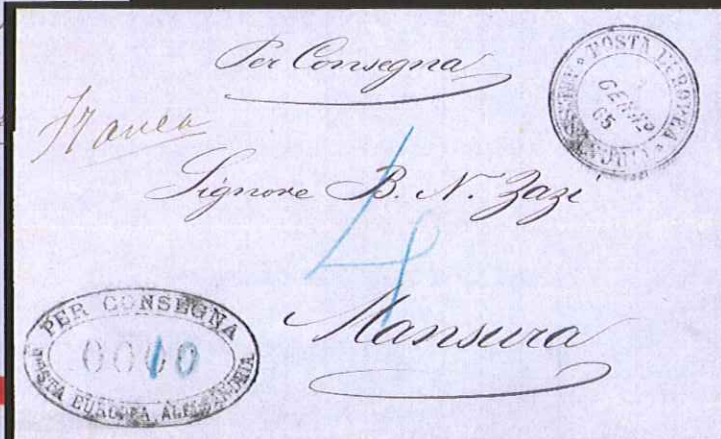 Per Consegna
POSTA EUROPEA
ALESSANDRIA
GENN⁰
65
Franca
Signore B. N. Zazi
4
Mansura
PER CONSEGNA
10
POSTA EUROPEA ALESSANDRIA